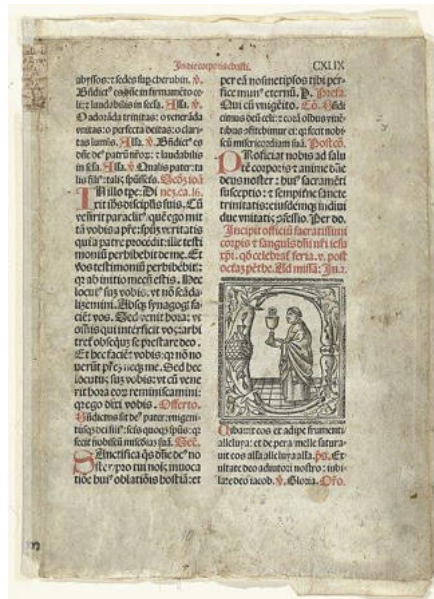 In die corporis christi. CXLIX
abyssos: et sedes sup cherubin. v.
Bndict' es dñe in firmamẽto ce-
li: et laudabilis in secla. Alla. v.
O adorãda trinitas: o venerãda
vnitas: o perfecta deitas: o clari-
tas lumis. Alla. v. Bñdict' es
dñe de' patrũ nrõꝝ: et laudabilis
in secla. Alla. v. Qualis pater: ta
lis fili': talis spũscũs. Secõz ioã
IN illo tpe: Di
xit ihs discipulis suis. Cũ
venerit paraclit': quẽ ego mit
tã vobis a pře: spũz veritatis
qui a patre procedit: ille testi
moniũ perhibebit de me. Et
vos testimoniũ perhibebit':
qr ab initio mecũ estis. Hec
locut' suz vobis: vt nõ scãda
lizemini. Absqz synagogis fa
ciẽt vos. Sed venit hora: vt
omnis qui interficit vos: arbi
tret obsequiũ se prestare deo.
Et hec faciẽt vobis: qr nõ no
uerũt přez neqz me. Sed hec
locutus suz vobis: vt cũ vene
rit hora eorum reminiscamini:
qr ego dixi vobis. Offerto.
Bñdictus sit de' pater: vnigeni
tusqz dei fili': scũs quoqz spũs: qr
fecit nobiscũ miam suã. Sec.
SAnctifica qs dñe de' no
ster: pro tui noĩs inuoca
tiõe hui' oblatiõis hostiã: et
per eã nosmetipsos tibi per-
fice mun' eternũ. P. Prefa.
Qui cũ vnigẽito. Cõ. Bñdi
cimus deũ celi: et corã oĩbus viuẽ-
tibus cõfitebimur ei: qr fecit nobi-
scũ misericordiam suã. Postcõ.
PRoficiat nobis ad salu
tẽ corporis et anime dñe
deus noster: hui' sacramẽti
susceptio: et sempiterne sancte
trinitatis: eiusdemqz indiui
due vnitatis cõfessio. Per do.
Incipit officiũ sacratissimi
corpis et sanguĩs dñi nři iesu
xpĩ. qd celebrat feria. v. post
octaz pẽthe. Ad missã: In.t.
Cibauit eos ex adipe frumenti
alleluya: et de petra melle satura-
uit eos alla alleluya alla. ps. Ex-
ultate deo adiutori nostro: iubi-
late deo iacob. v. Gloria. Oro.